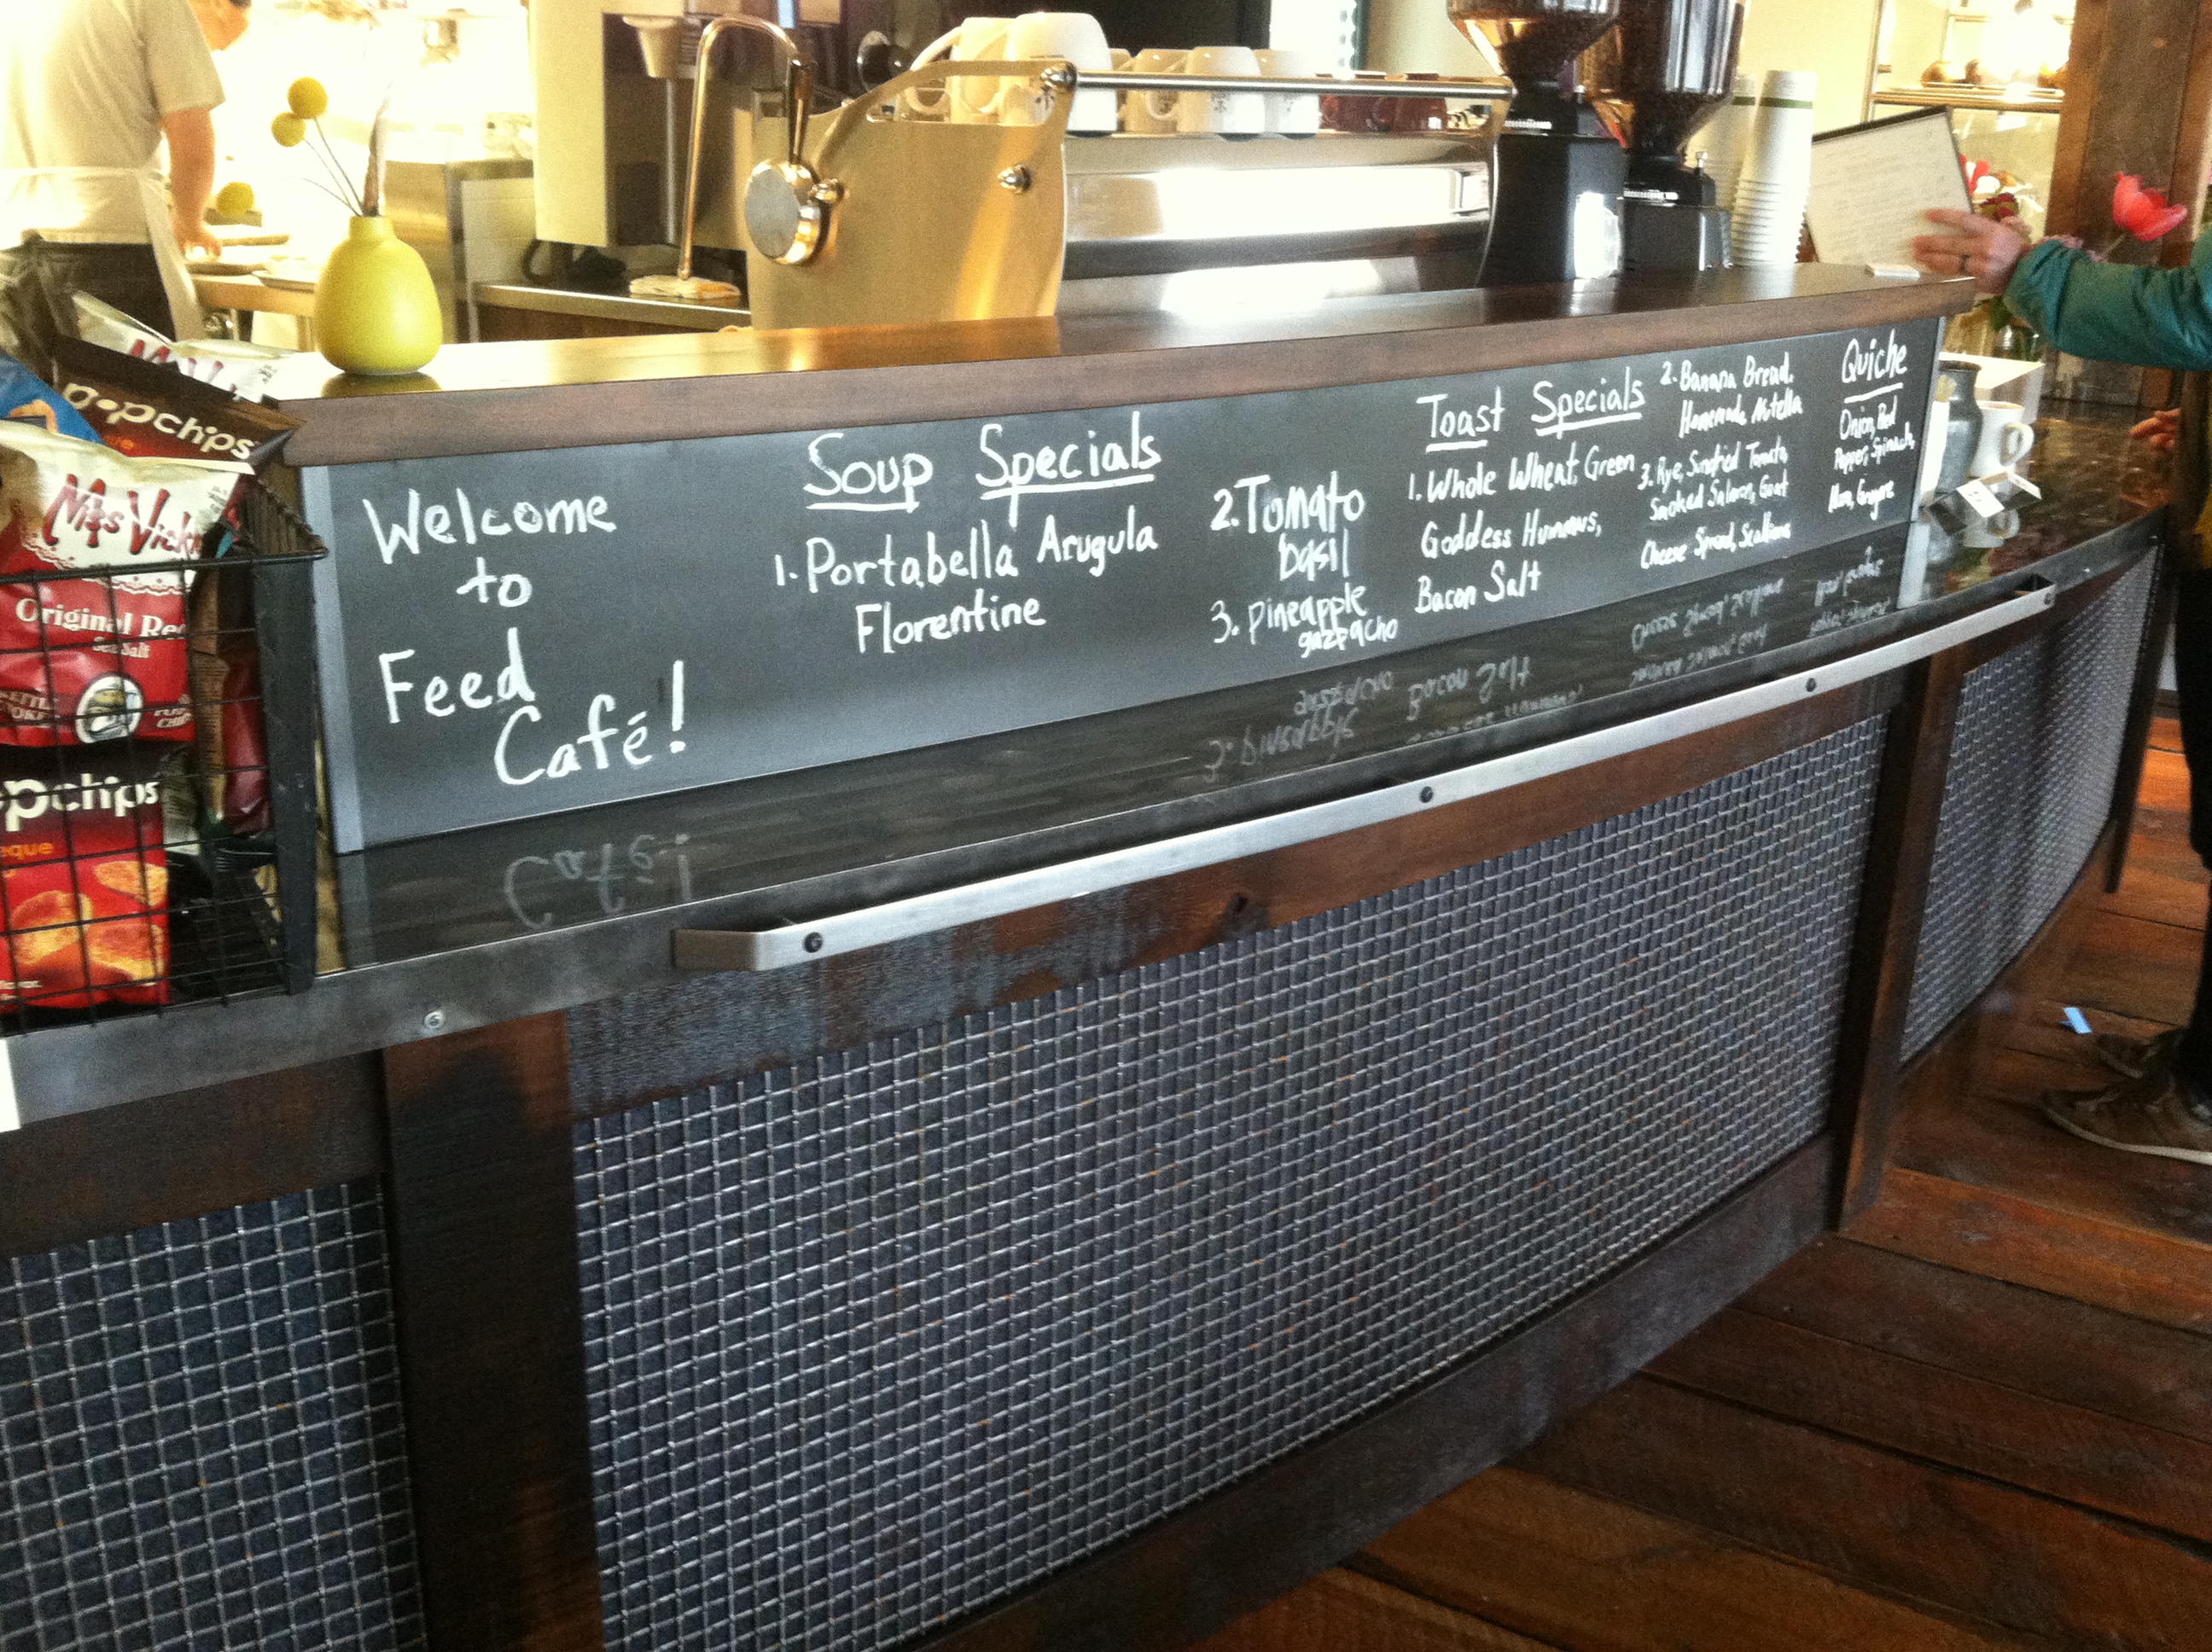 Welcome
to
Feed
Café!
Soup Specials
1. Portabella Arugula
Florentine
2. Tomato
basil
3. Pineapple
gazpacho
Toast Specials
1. Whole Wheat, Green
Goddess Hummus,
Bacon Salt
2. Banana Bread,
Homemade Nutella
3. Rye, Tomato,
Smoked Salmon, Goat
Cheese Spread, Scallions
Quiche
Onion, Red
Pepper, Spinach,
Gruyere
popchips
Miss Vick
Original Re
Sea Salt
pchips
eque